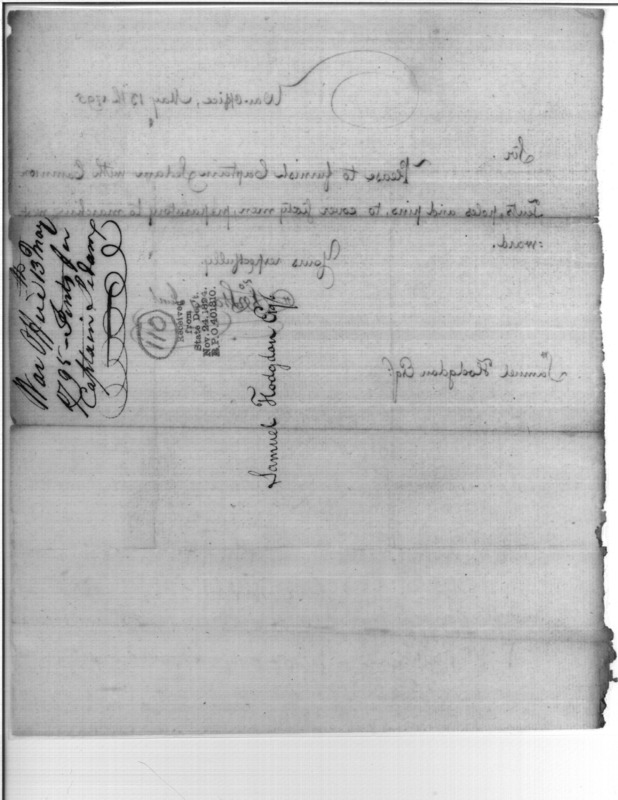 War Office, May 13th 1795
Sir
Please to furnish Captain with Common
Tents, poles and pins, to cover men, preparatory to marching
:ward.
Yours respectfully
Samuel Hodgdon Esqr.
War Office 13th May
1795 - Tents for
Captain
110
Received
from
State Dep't.
Nov. 24,
R.P.O. 401810.
Samuel Hodgdon Esqr